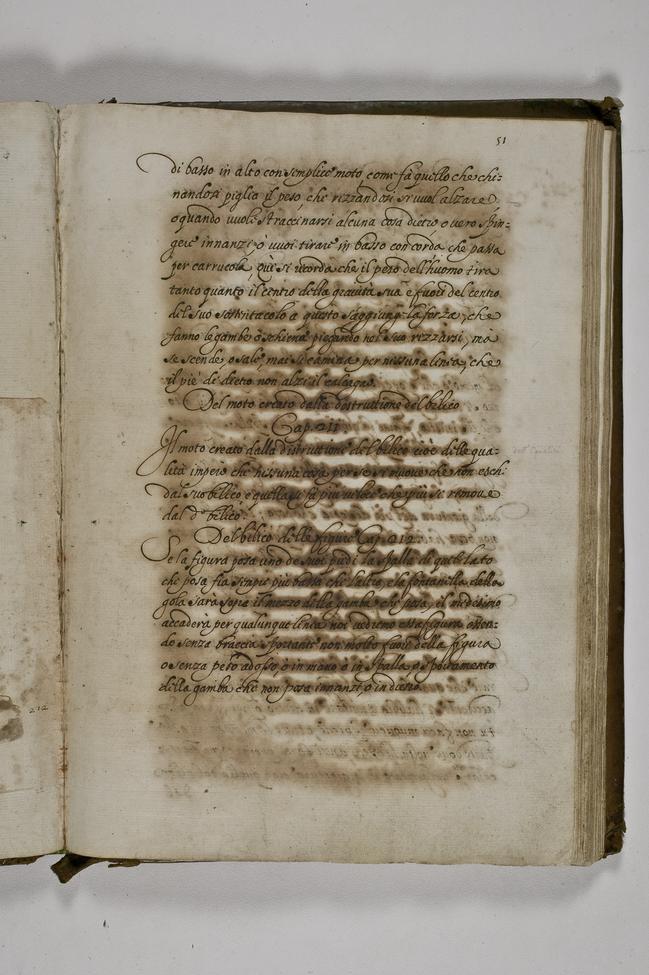 51
di basso in alto con semplice moto, come fa quello che chi=
nandosi piglia il peso, che rizzandosi si vuol alzare
o quando vuole straccinarsi alcuna cosa dietro o vero spin=
gere innanzi, o vuoi tirare in basso con corda che passa
per carrucola, qui si ricorda che il peso dell'huomo tira
tanto quanto il centro della gravità sua è fuori del centro
del suo sostentacolo a questo s'aggiunge la forza, che
fanno le gambe o schiena piegando nel suo rizzarsi, ma
se scende o sale, mai si camina per nissuna linea, che
il piè di dietro non alzi il calcagno.
Del moto creato dalla distruttione del bilico
Cap. 211
Il moto creato dalla distruttione del bilico cioè della qua=
lità imperò che nissuna cosa per se si muove che non eschi
dal suo bilico, e quella si fa più veloce che più si remove
dal d.º bilico
Del bilico delle figure Cap. 212.
Se la figura posa uno de suoi piedi la spalla di quel lato
che posa fia sempre più bassa che l'altra, e la fontanella della
gola sarà sopra il mezzo della gamba che posa, il medesimo
accaderà per qualunque linea noi vedremo essa figura essen=
do senza braccia sportanti non molto fuori della figura
o senza peso adosso, o in mano o in spalla o sportamento
della gamba che non posa innanzi, o indietro
212